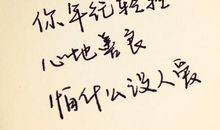 你年纪轻轻
心地善良
怕什么没人爱